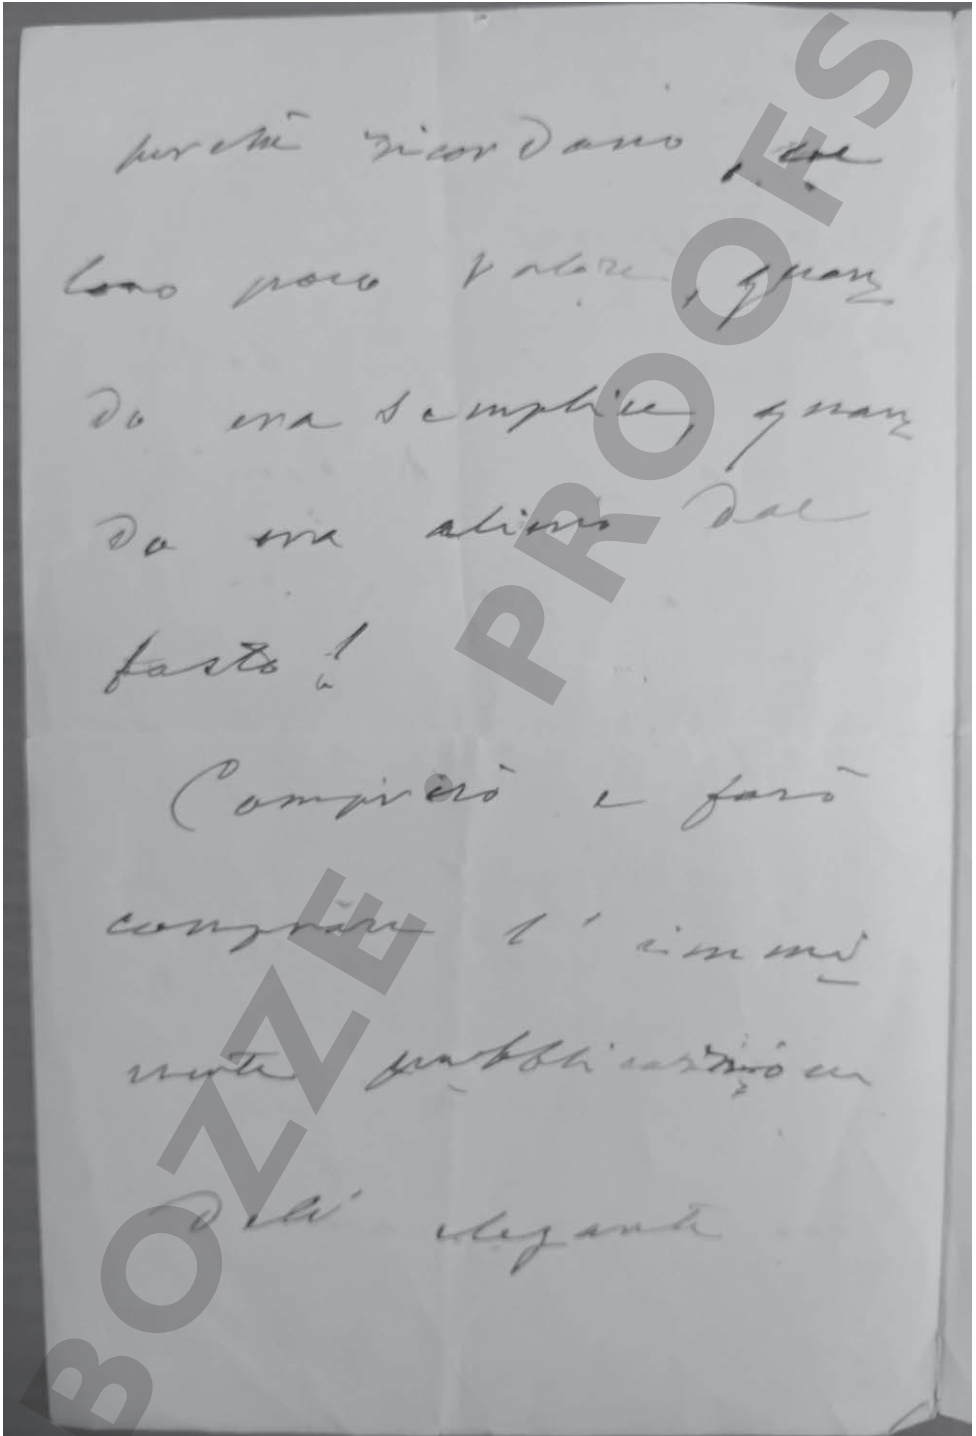 perchè ricordano, 
loro poco valore, quan
do era semplice, quan
do era alieno dal
fasto!
Comprerò e farò
comprare l'immi
nente pubblicazione
dell'elegante
BOZZE PROOFS